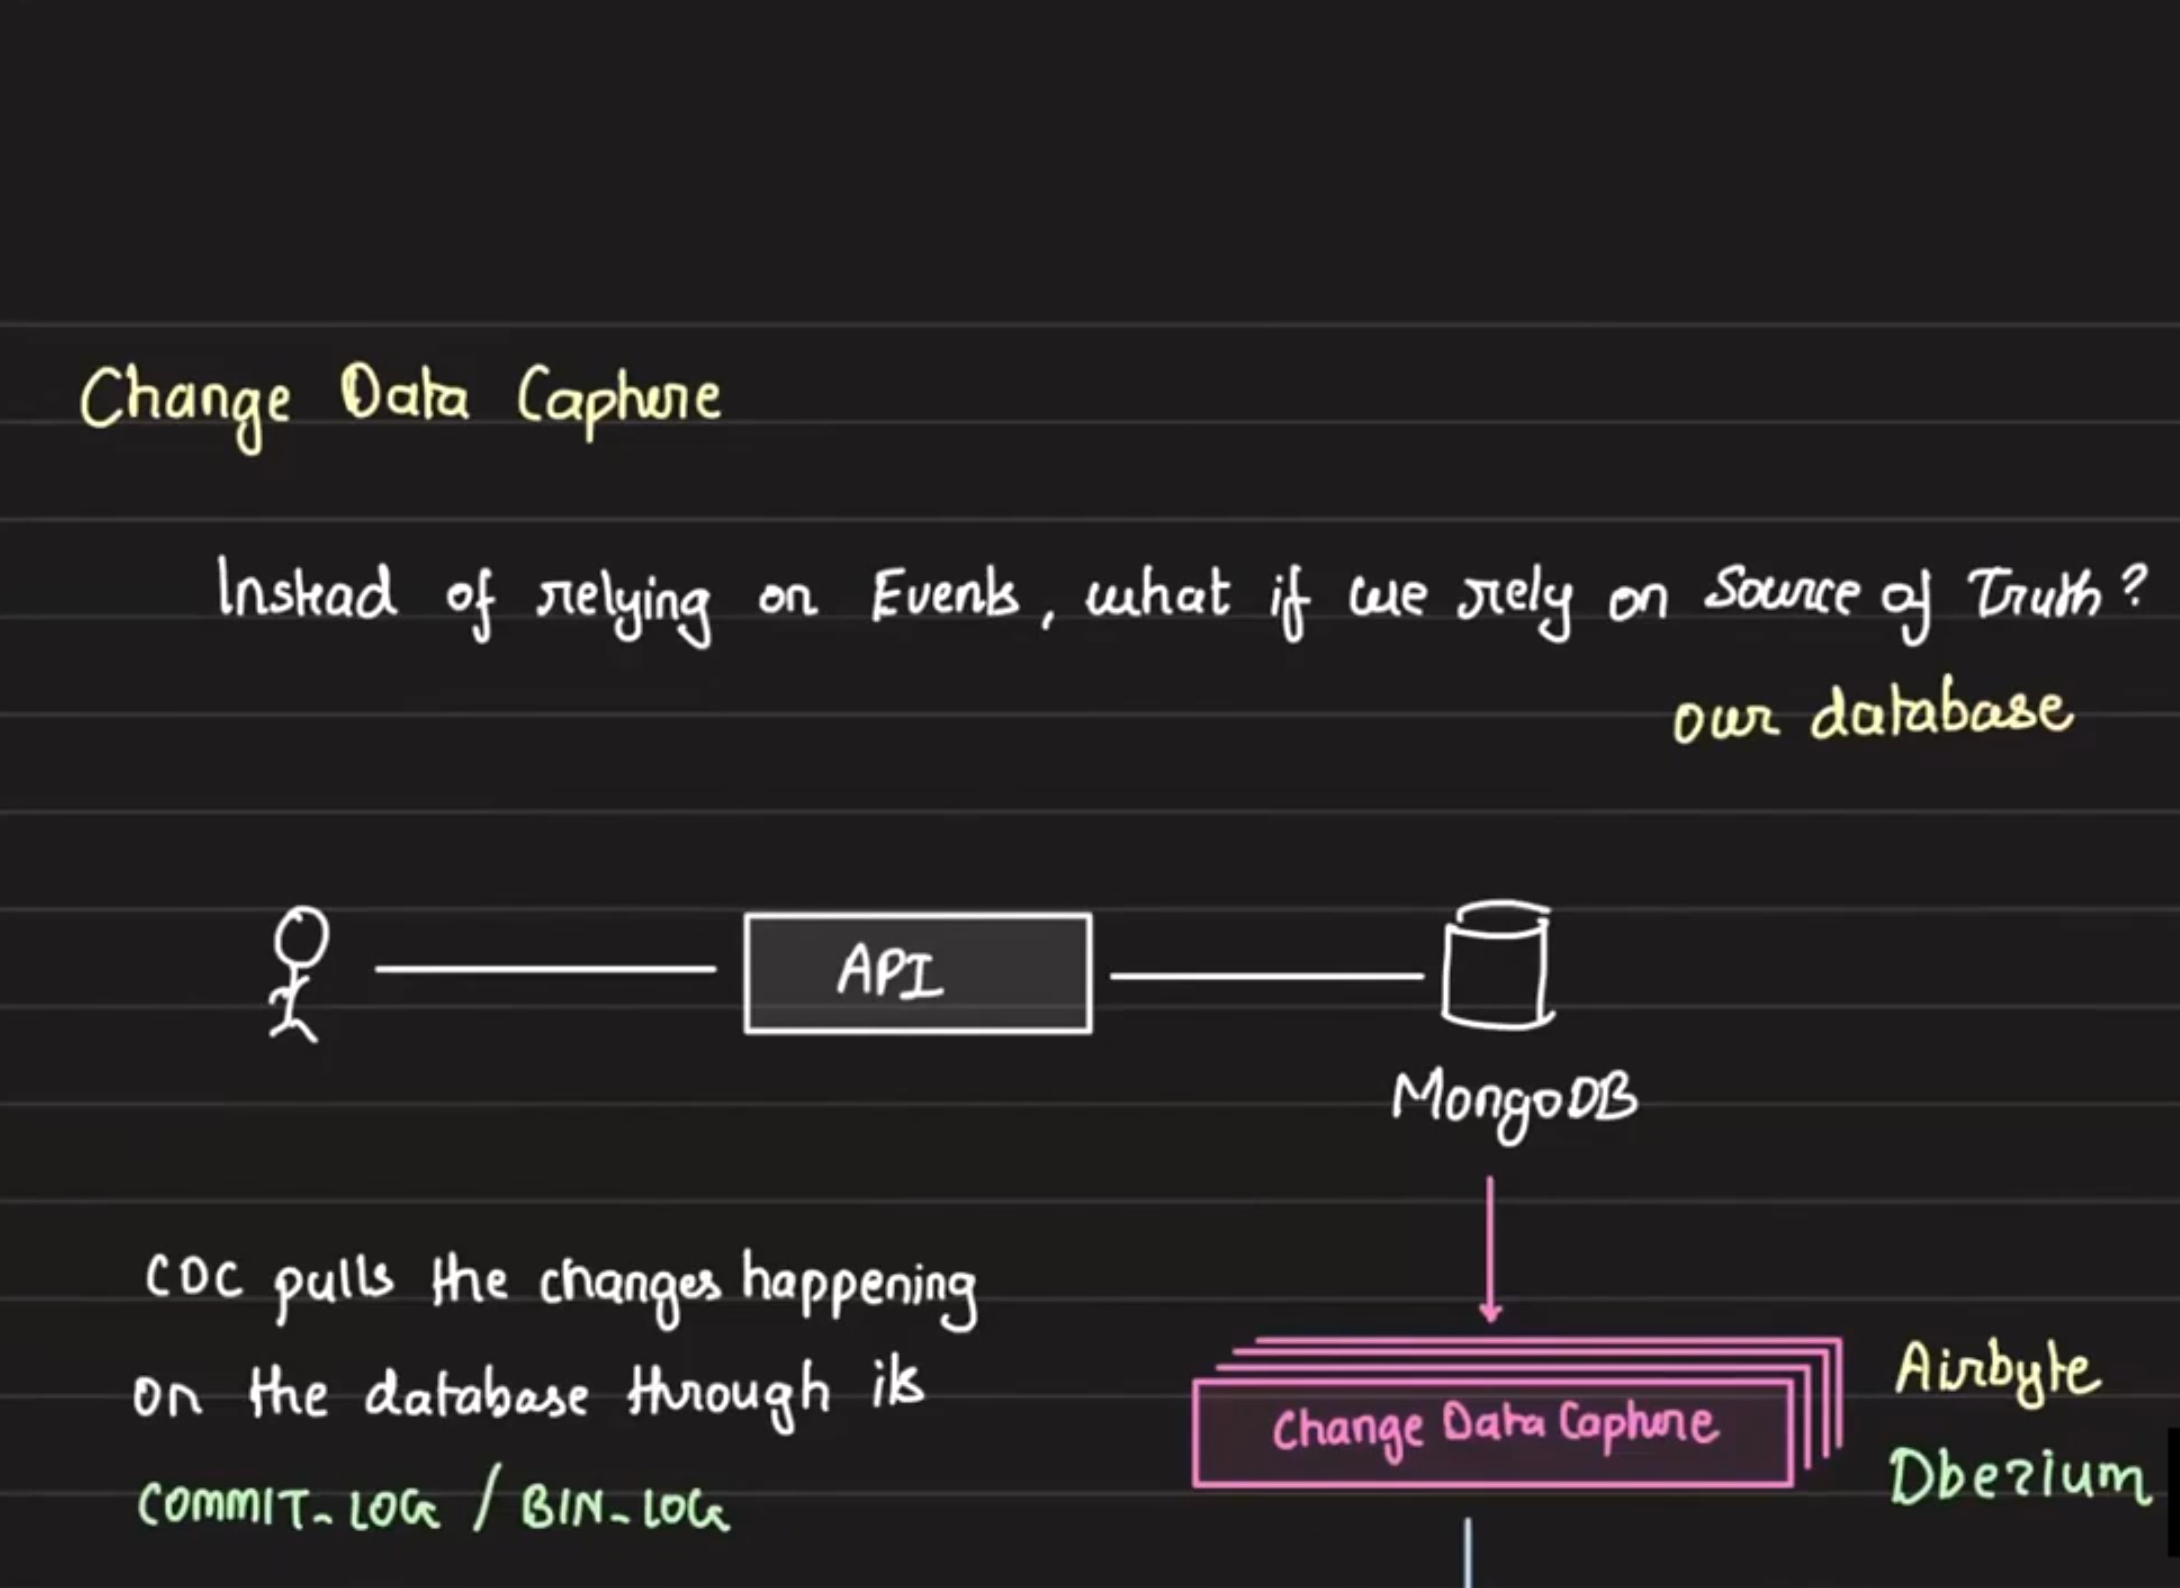 Change Data Capture
Instead of relying on Events, what if we rely on Source of Truth?
our database
API
MongoDB
CDC pulls the changes happening
on the database through its
COMMIT_LOG / BIN_LOG
Change Data Capture
Airbyte
Dbezium